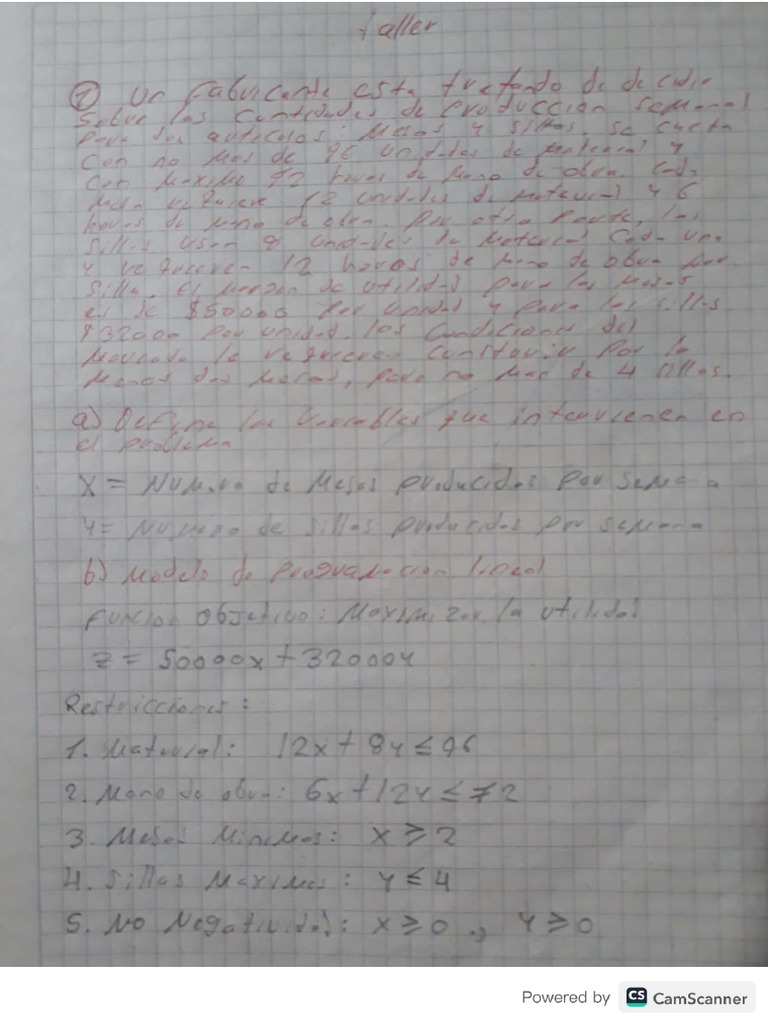 Taller
① Un Fabricante esta tratando de decidir
Sobre las Cantidades de Producción Semanal
para dos articulos: Mesas y sillas. se cuenta
Con no mas de 96 unidades de Material y
Con Maximo 72 horas de Mano de obra. Cada
Mesa requiere 12 unidades de material y 6
horas de Mano de obra. Por otra Parte, las
Sillas usan 8 unidades de Material Cada una
y requieren 12 horas de Mano de obra por
Silla. el Margen de utilidad para las Mesas
es de $50000 Por unidad y para las sillas
$32000 por unidad. las Condiciones del
Mercado le requieren Construir Por lo
Menos dos Mesas, pero no Mas de 4 sillas.
a) Define las Variables que intervienen en
el problema
X = Numero de Mesas producidas Por Semana
Y = Numero de sillas producidas por semana
b) Modelo de Programacion lineal
Funcion Objetivo: Maximizar la utilidad
Z = 50000x + 32000y
Restricciones:
1. Material: 12x + 8y ≤ 96
2. Mano de obra: 6x + 12y ≤ 72
3. Mesas Minimas: x ≥ 2
4. Sillas Maximas: y ≤ 4
5. No Negatividad: x ≥ 0, y ≥ 0
Powered by CS CamScanner